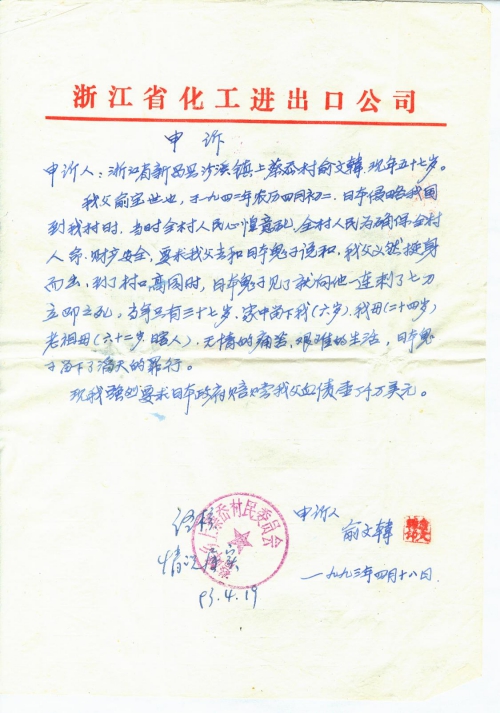 浙江省化工进出口公司
申诉
申诉人：浙江省新昌县沙溪镇上蔡岙村俞文韩，现年五十七岁。
我父俞宝世也，于一九四二年农历四月初二，日本侵略我国
到我村时，当时全村人民心惶意乱，全村人民为确保全村
人命、财产安全，要求我父去和日本鬼子说和，我父义然挺身
而出，到了村口高园时，日本鬼子见了就向他一连刺了七刀
立即亡死，当年只有三十七岁，家中留下我（六岁）、我母（二十四岁）
老祖母（六十三岁瞎人），无情的痛苦、艰难的生活，日本鬼
子留下了滔天的罪行。
现我强烈要求日本政府赔偿我父血债 万美元。
申诉人
俞文韩
一九九三年四月十八日
上蔡岙村民委员会
经核
情况属实
93.4.19